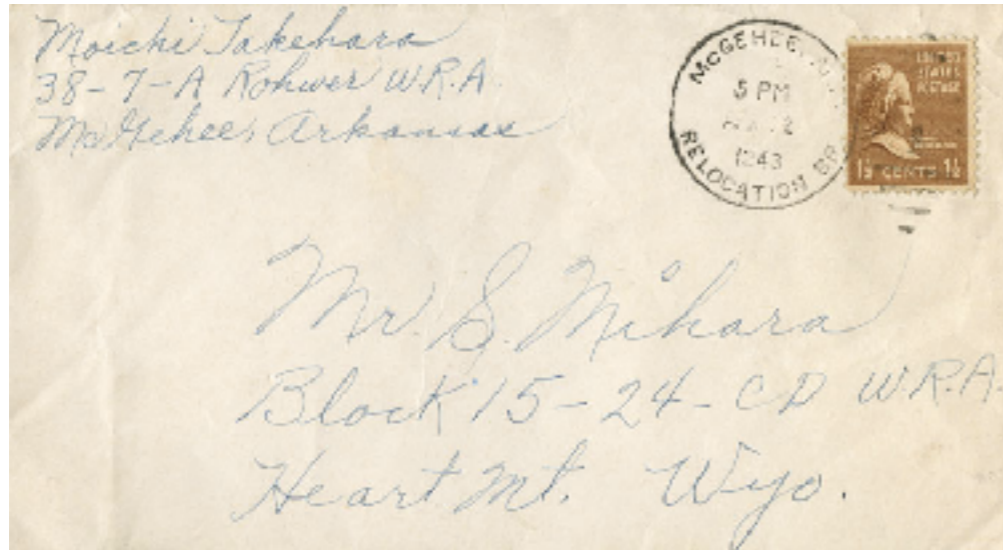 Moichi Takehara
38-7-A Rohwer W.R.A.
McGehee, Arkansas
McGEHEE,
5 PM
2
1943
RELOCATION BR.
UNITED
STATES
POSTAGE
1½ CENTS 1½
Mr. S. Mihara
Block 15-24-CD W.R.A
Heart Mt. Wyo.